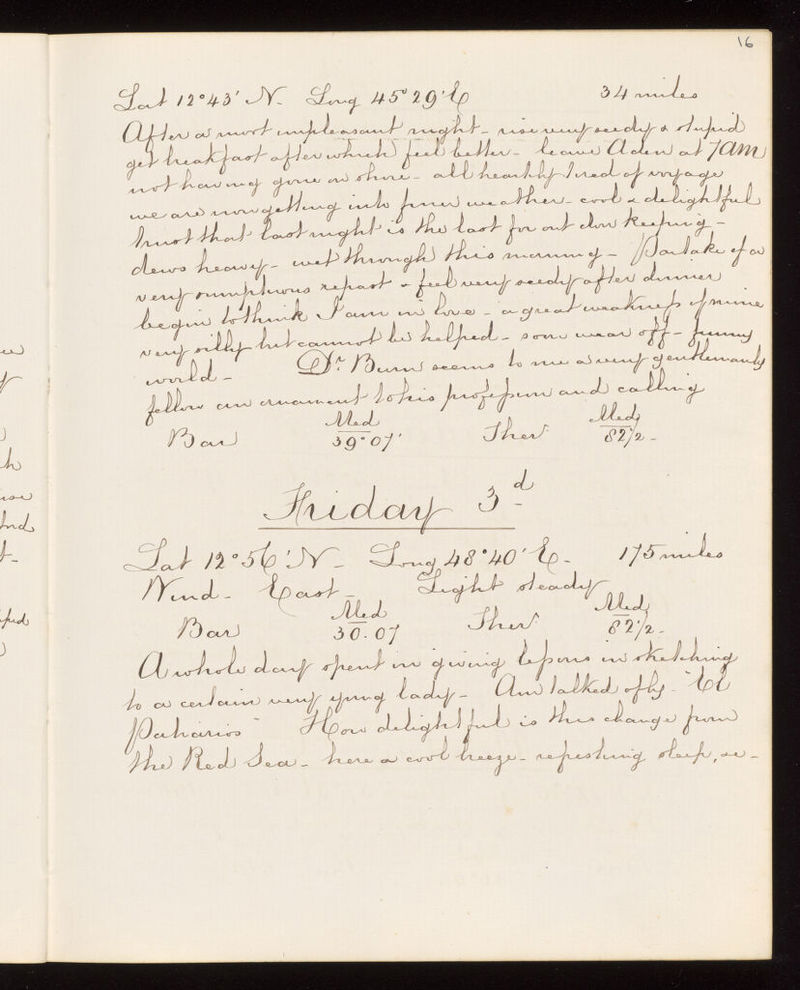 16
Lat 12°43' N. Long 45°29' E 34 miles
After a most unpleasant night - rise very seedy & stupid
get breakfast after which feel better - leave Aden at 7 AM
not having gone on shore - all heartily tired of voyage
we are now getting into finer weather - cool & delightful
trust that last night is the last for out door keeping -
dews heavy - wet through this morning - Partake of a
very sumptuous repast & feel very seedy after dinner
begin to think I am in love - a great weakness of mine
very silly but cannot be helped - soon wear off - funny
world - Dr. Burn seems to me a very gentlemanly
fellow an ornament to his profession and calling
Med Med
Bar 39.07 Ther 82½ -
Friday 3d
Lat 12°56' N - Long 48°40' E - 175 miles
Wind - East - Light steady
Med Med
Bar 30.07 Ther 82½ -
A whole day spent in giving lessons in sketching
to a certain very young lady - Am talked of by
How delightful is this change from
the Red Sea - here a cool breeze - refreshing sleep,